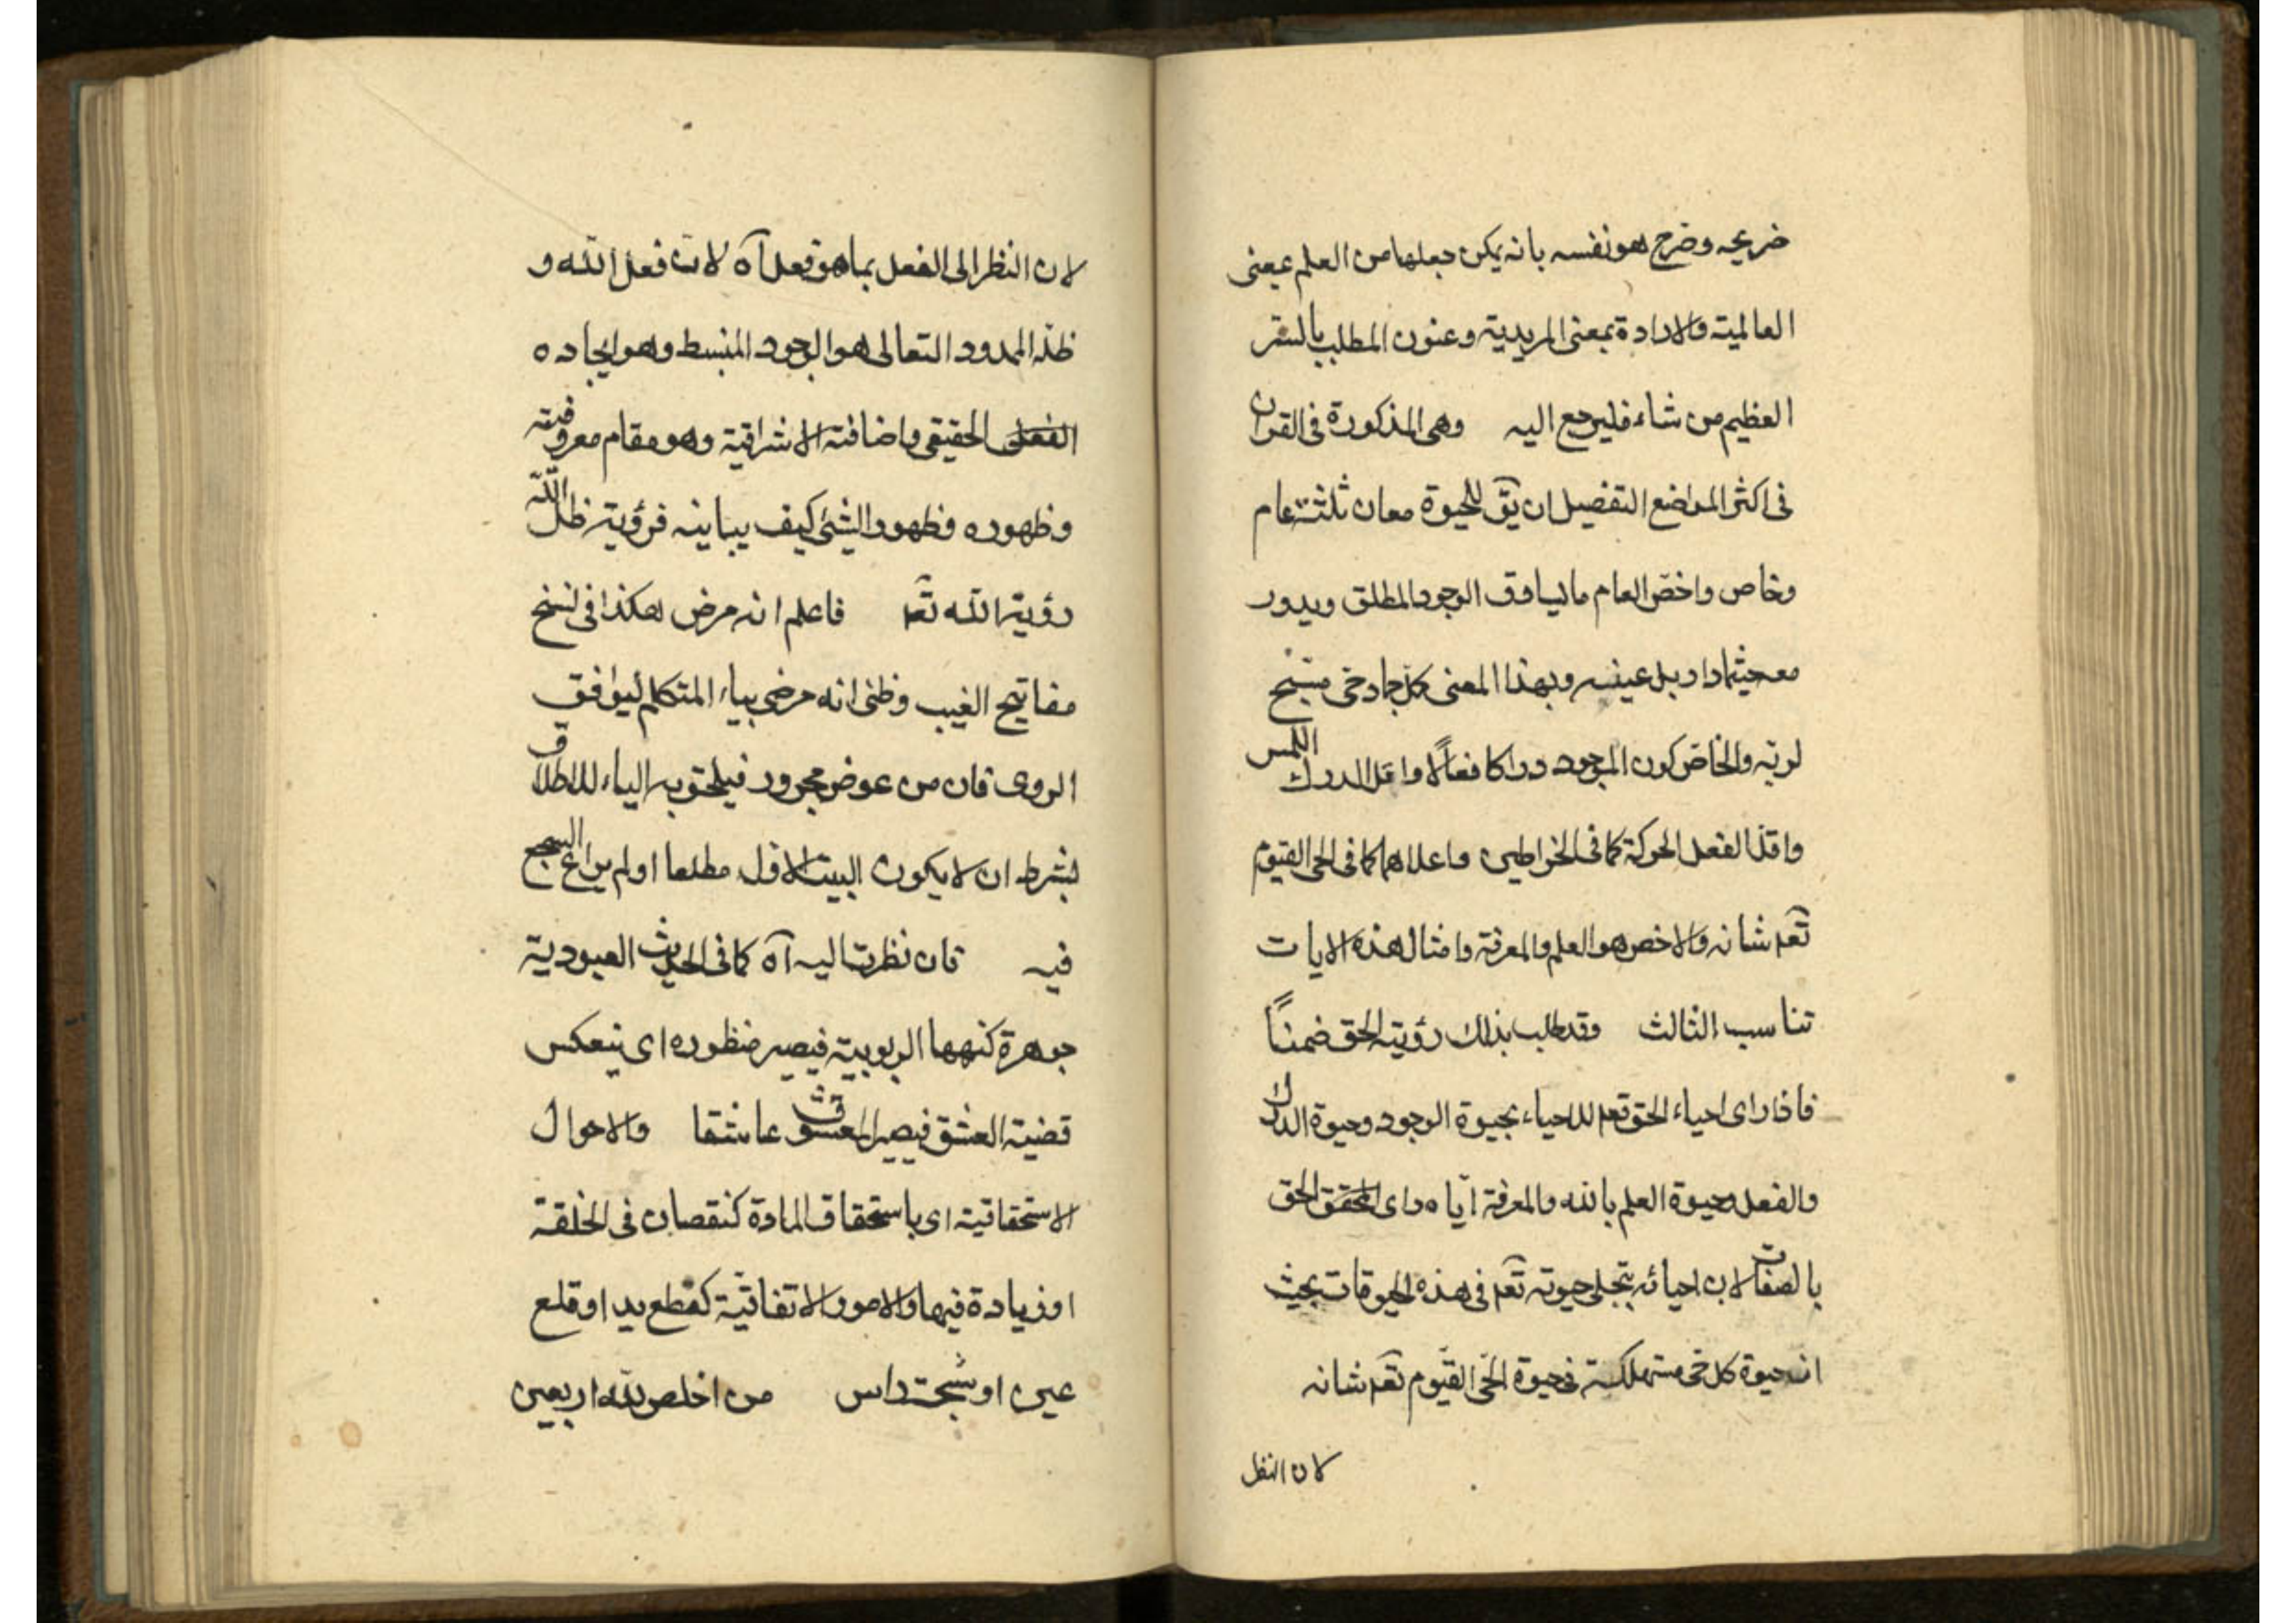 ضريحه وضرح هو نفسه بانه يمكن جعلها من العلم بمعنى
العالمية والارادة بمعنى المريدية وعنون المطلب بالستر
العظيم من شاء فليرجع اليه وهى المذكورة فى القران
فى اكثر المواضع التفصيل ان يق للحيوة معان ثلثة عام
وخاص واخص العام ما يساوق الوجود المطلق ويدور
معه حيثما دار بل عينه وبهذا المعنى كل جماد حى مسبح
لربه والخاص كون الموجود دراكا فعالا واقل الدرك اللمس
واقل الفعل الحركة كما فى الخراطين واعلاهما كما فى الحى القيوم
تعه شانه والاخص هو العلم والمعرفة وامثال هذه الايات
تناسب الثالث وقد طلب بذلك رؤية الحق ضمناً
فاذا راى احياء الحق تعه للاحياء بحيوة الوجود وحيوة الدرك
والفعل وحيوة العلم بالله والمعرفة اياه راى المحقق الحق
بالصفات لان احيائه بتجلى حيوته تعه فى هذه الحيوقات بحيث
ان حيوة كل حى مستهلكة فى حيوة الحى القيوم تعه شانه
لان النظر
لان النظر الى الفعل بما هو فعل آه لان فعل الله و
ظله الممدود التعالى هو الوجود المنبسط وهو ايجاده
الفعلى الحقيقى واضافته الاشراقية وهو مقام معروفيته
وظهوره وظهور الشئ كيف يباينه فرؤية ظل الله
رؤية الله تعه فاعلم انه مرض هكذا فى نسخ
مفاتيح الغيب وظنى انه مرضى بياء المتكلم ليوافق
الروى فان من عوض مجرور فيلحق به الياء للاطلاق
بشرط ان لا يكون البيت الاول مطلعا او لم يراع السجع
فيه فان نظرت اليه آه كما فى الحديث العبودية
جوهرة كنهها الربوبية فيصير منظوره اى ينعكس
قضية العشق فيصير المعشوق عاشقا والاحوال
الاستحقاقية اى باستحقاق المادة كنقصان فى الخلقة
او زيادة فيها والامور الاتفاقية كقطع يد او قلع
عين او شجة راس من اخلص لله اربعين